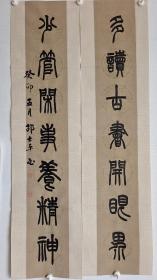 多讀古書開眼界
少管閑事養精神
癸卯